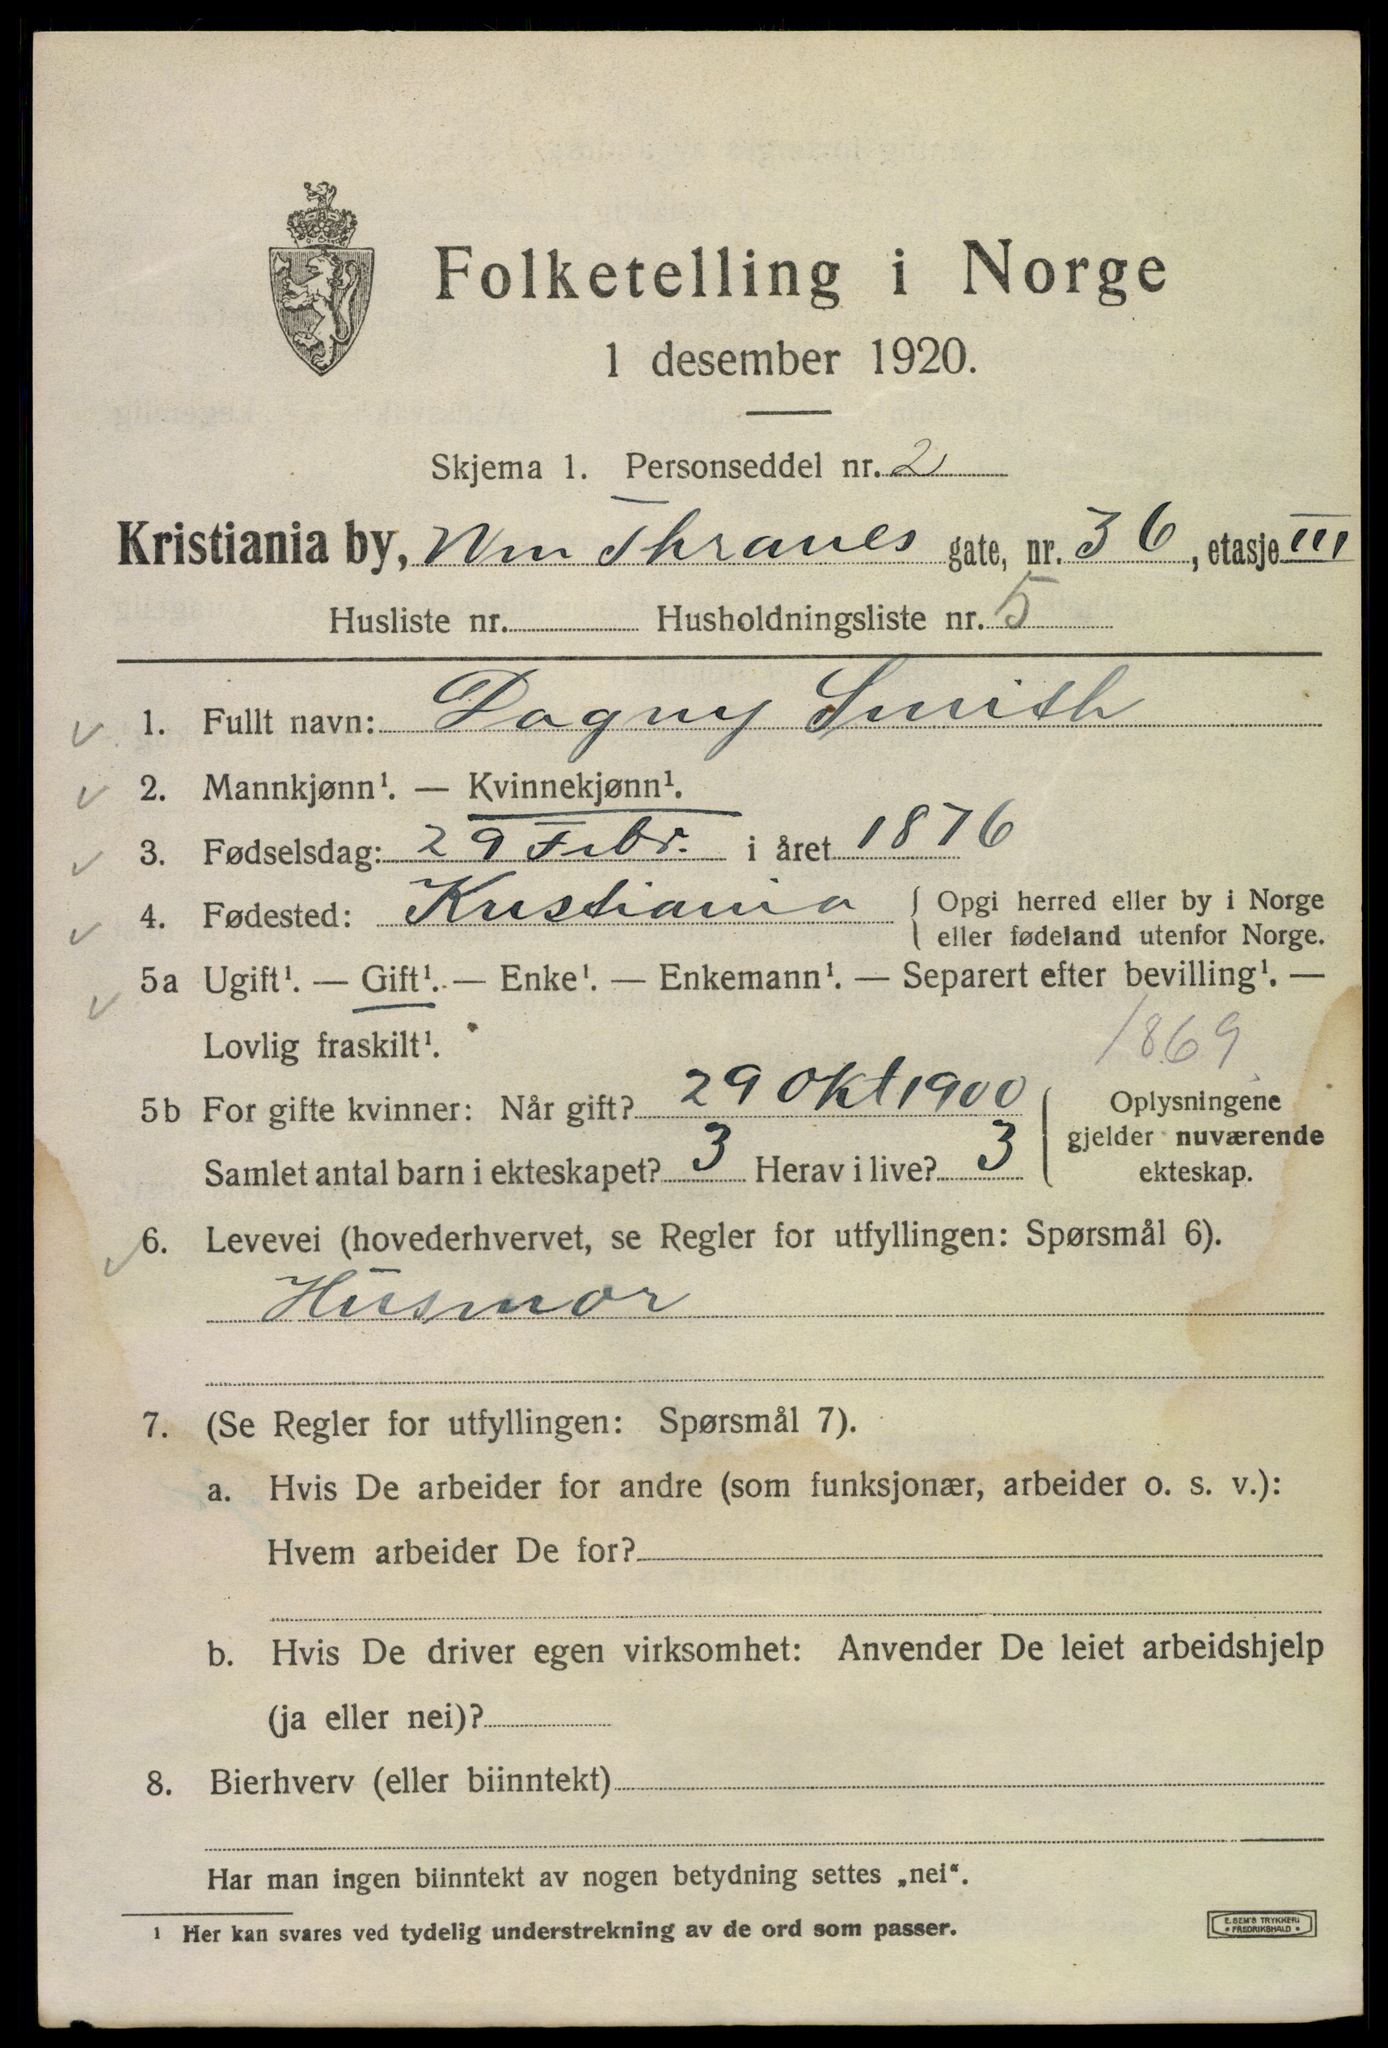 Folketelling i Norge
1 desember 1920.
Skjema 1. Personseddel nr. 2
Kristiania by, Wm Thranes gate, nr. 36, etasje III
Husliste nr. Husholdningsliste nr. 5
1. Fullt navn: Dagny Smith
2. Mannkjønn¹. — Kvinnekjønn¹.
3. Fødselsdag: 29 Febr. i året 1876
4. Fødested: Kristiania { Opgi herred eller by i Norge
eller fødeland utenfor Norge.
5a Ugift¹. — Gift¹. — Enke¹. — Enkemann¹. — Separert efter bevilling¹. —
Lovlig fraskilt¹. 1869
5b For gifte kvinner: Når gift? 29 Okt 1900 { Oplysningene
gjelder nuværende
Samlet antal barn i ekteskapet? 3 Herav i live? 3 ekteskap.
6. Levevei (hovederhvervet, se Regler for utfyllingen: Spørsmål 6).
Husmor
7. (Se Regler for utfyllingen: Spørsmål 7).
a. Hvis De arbeider for andre (som funksjonær, arbeider o. s. v.):
Hvem arbeider De for?
b. Hvis De driver egen virksomhet: Anvender De leiet arbeidshjelp
(ja eller nei)?
8. Bierhverv (eller biinntekt)
Har man ingen biinntekt av nogen betydning settes „nei“.
¹ Her kan svares ved tydelig understrekning av de ord som passer.
E. SEM'S TRYKKERI
* FREDRIKSHALD *